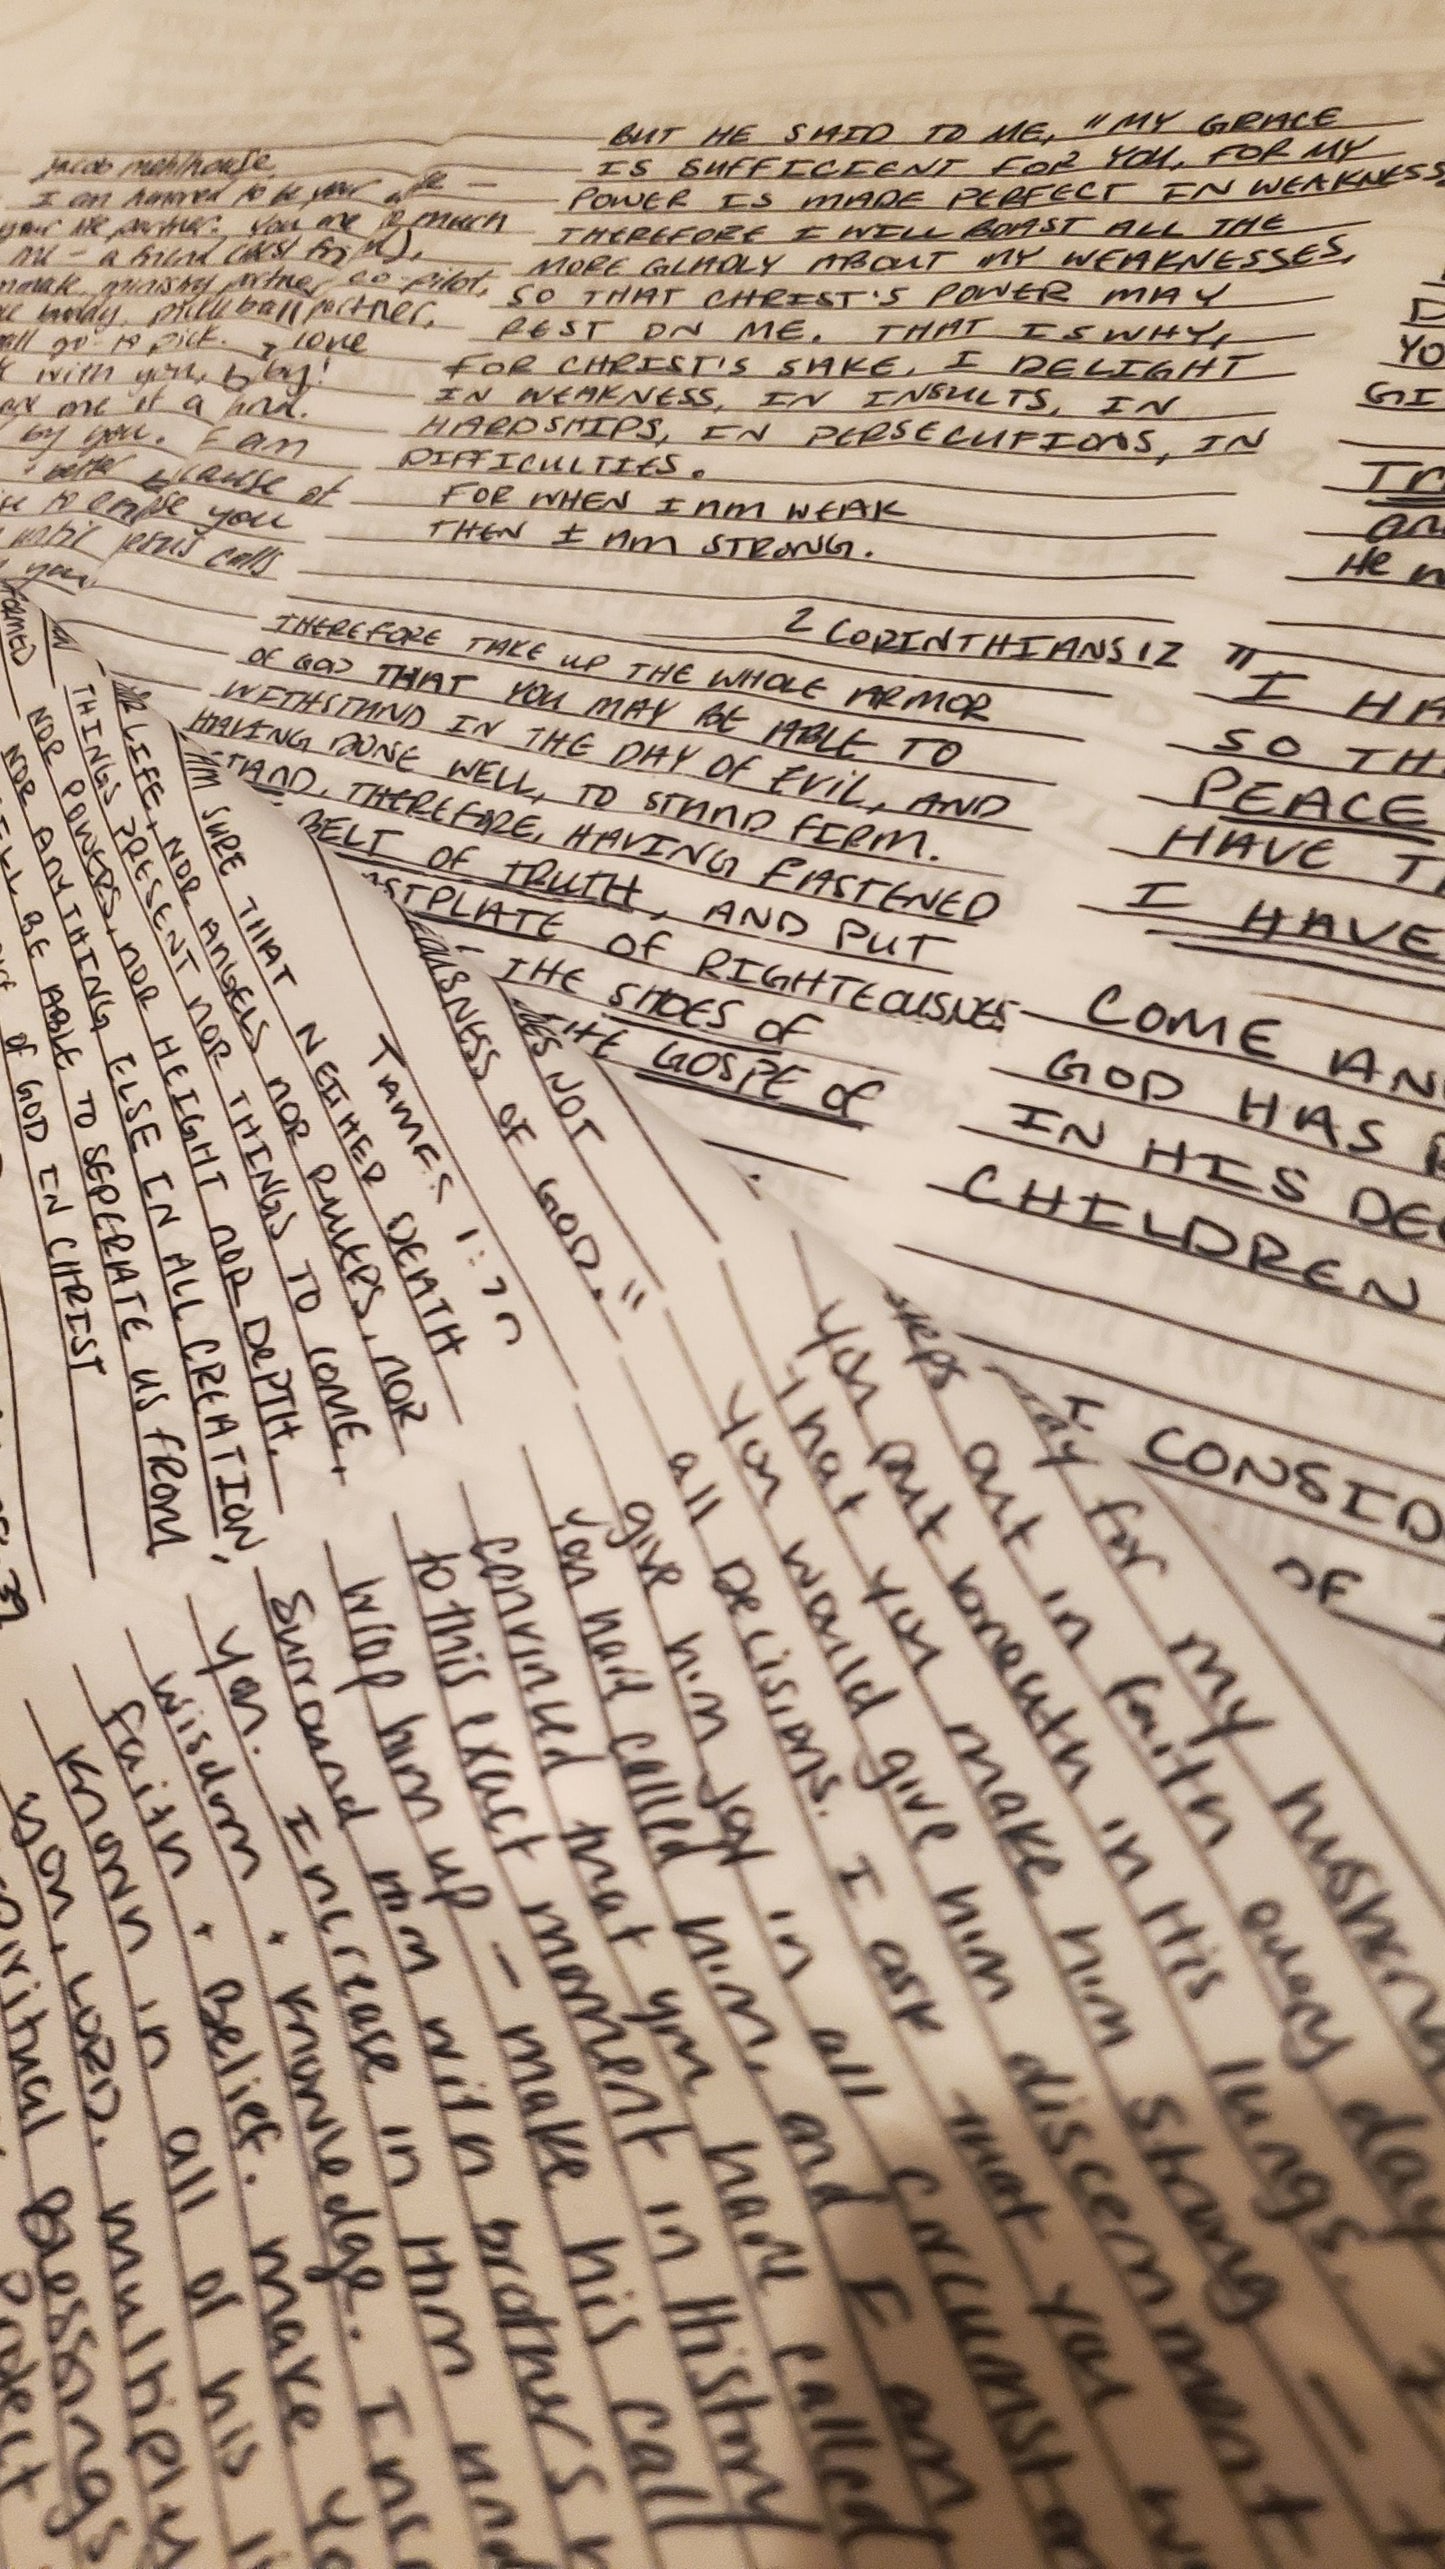 I am honored to be your
your life partner. You are so much
me - a friend (best friend),
ministry partner, co-pilot,
pickleball partner,
I love
with you, baby!
by you. I am
because of
you
until Jesus calls
you
BUT HE SAID TO ME, "MY GRACE
IS SUFFICIENT FOR YOU, FOR MY
POWER IS MADE PERFECT IN WEAKNESS.
THEREFORE I WILL BOAST ALL THE
MORE GLADLY ABOUT MY WEAKNESSES,
SO THAT CHRIST'S POWER MAY
REST ON ME. THAT IS WHY,
FOR CHRIST'S SAKE, I DELIGHT
IN WEAKNESS, IN INSULTS, IN
HARDSHIPS, IN PERSECUTIONS, IN
DIFFICULTIES.
FOR WHEN I AM WEAK
THEN I AM STRONG.
2 CORINTHIANS 12
THEREFORE TAKE UP THE WHOLE ARMOR
OF GOD THAT YOU MAY BE ABLE TO
WITHSTAND IN THE DAY OF EVIL, AND
HAVING DONE WELL, TO STAND FIRM.
STAND, THEREFORE, HAVING FASTENED
BELT OF TRUTH, AND PUT
STPLATE OF RIGHTEOUSNESS
THE SHOES OF
THE GOSPE OF
YO
GI
He
"I HA
SO TH
PEACE
HAVE T
I HAVE
COME AN
GOD HAS
IN HIS DE
CHILDREN
I CONSID
OF
NOT
OUSNESS OF GOD."
JAMES 1:20
AM SURE THAT NEITHER DEATH
OR LIFE, NOR ANGELS NOR RULERS, NOR
THINGS PRESENT NOR THINGS TO COME,
NOR POWERS, NOR HEIGHT NOR DEPTH,
NOR ANYTHING ELSE IN ALL CREATION,
WILL BE ABLE TO SEPERATE US FROM
OF GOD IN CHRIST
39
ay for my husband
steps out in faith every day
You put breath in His lungs.
that you make him strong
you would give him discernment
all Decisions. I ask that you
give him joy in all circumstan
You have called him, and I am
convinced that you have called
to this exact moment in History
Wrap him up - make his call
Surround him with brothers
you. Increase in Him
wisdom + knowledge. Inc
faith + Belief. make
known in all of his
you, LORD. multiply
spiritual Blessings